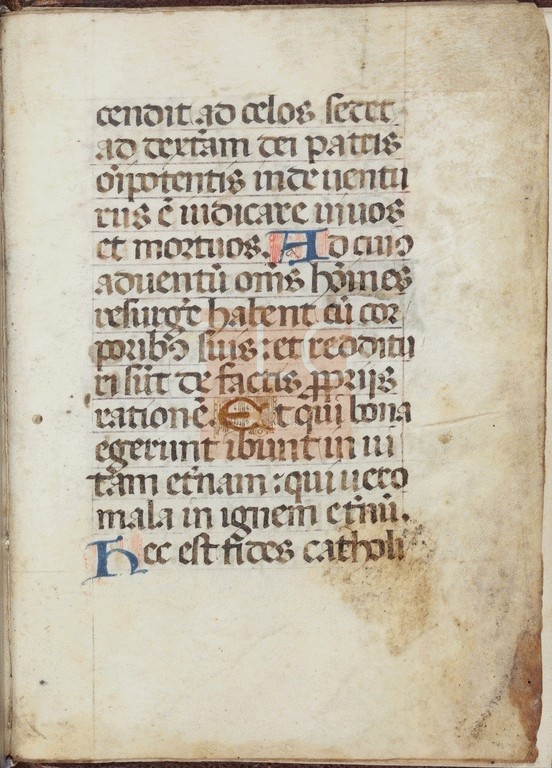 cendit ad celos sedet
ad dext̃am dei patris
om̃ipotentis inde uentu
rus ẽ iudicare uiuos
et mortuos. Ad cuiꝯ
aduentũ om̃s hõmes
resurg̃e habent cũ cor
poribꝯ suis : et redditu
ri sũt de factis ꝓprijs
rationẽ. Et qui bona
egerunt ibunt in ui
tam et̃nam : qui uero
mala in ignem et̃nũ.
Hec est fides catholi